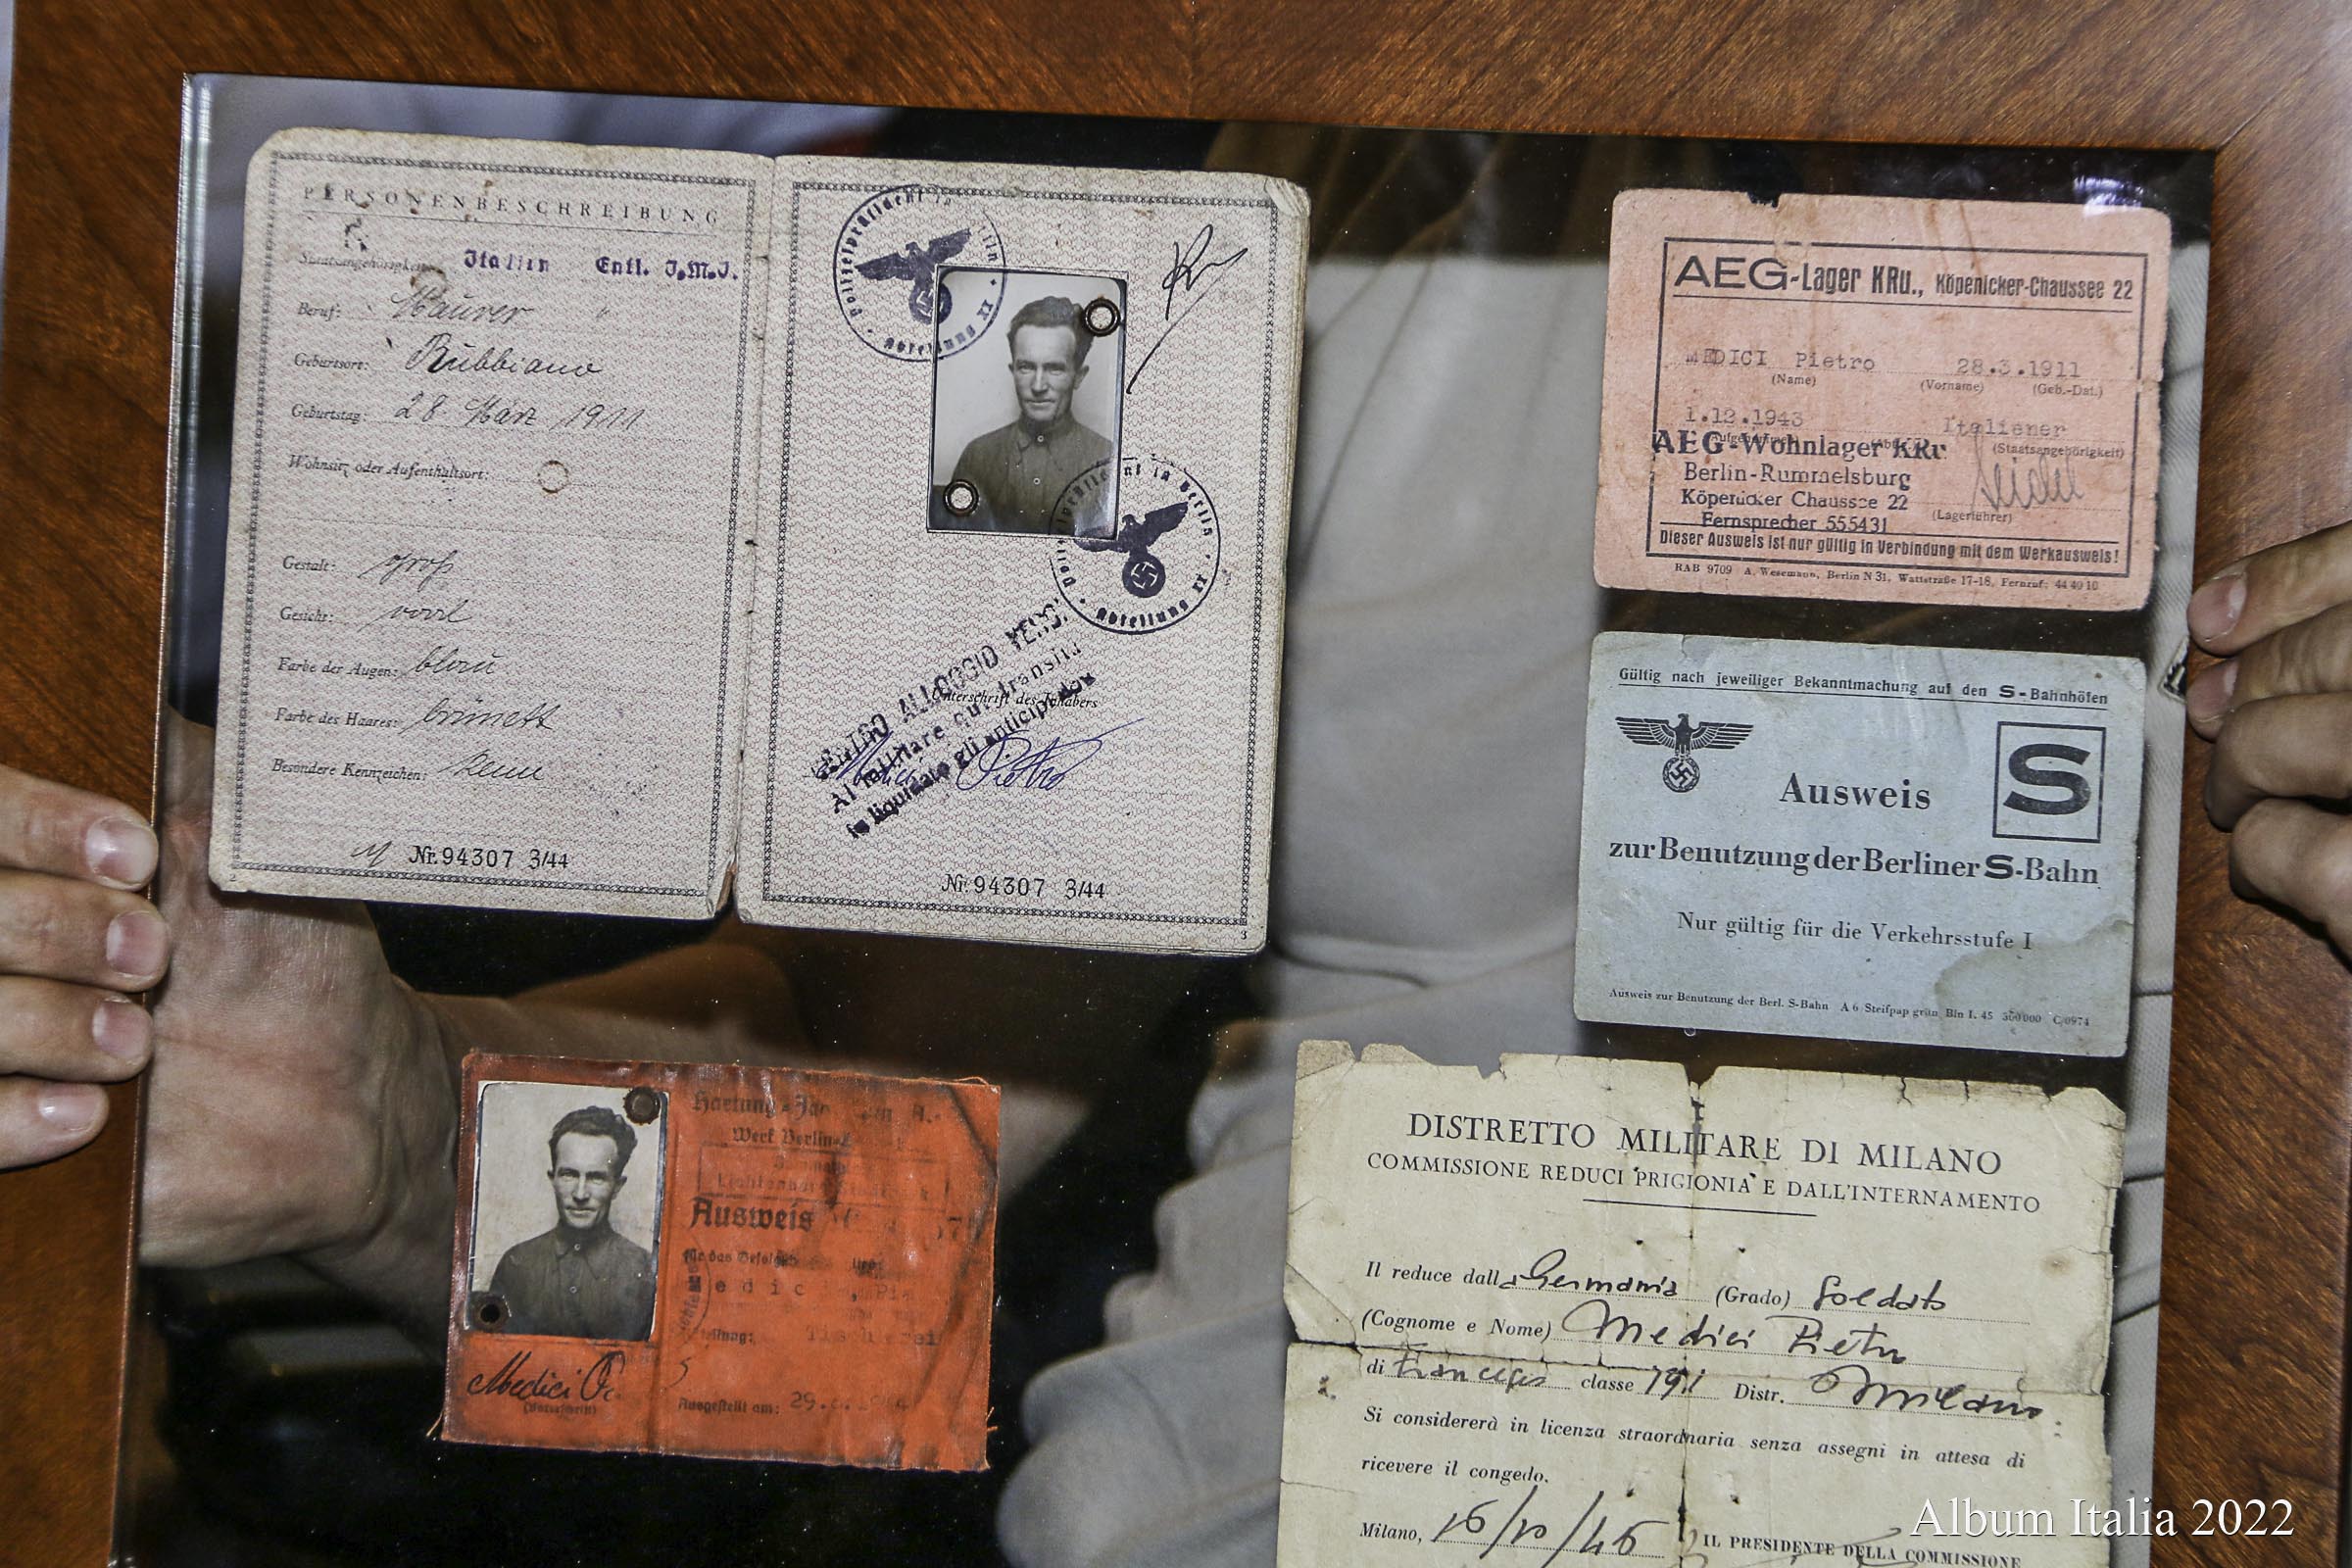 PERSONENBESCHREIBUNG
Staatsangehörigkeit: Italien Entl. I.M.I.
Beruf: Maurer
Geburtsort: Rubbiano
Geburtstag: 28 März 1911
Wohnsitz oder Aufenthaltsort:
Gestalt: groß
Gesicht: oval
Farbe der Augen: blau
Farbe des Haares: brünett
Besondere Kennzeichen: keine
Nr. 94307 3/44
2
Polizeipräsident in Berlin
Abteilung II
Polizeipräsident in Berlin
Abteilung II
CENTRO ALLOGGIO
Al militare qui transita
liquidato gli anticipi
Unterschrift des Inhabers
Medici Pietro
Nr. 94307 3/44
3
AEG-Lager KRu., Köpenicker-Chaussee 22
MEDICI Pietro 28.3.1911
(Name) (Vorname) (Geb.-Dat.)
1.12.1943 Italiener
(Staatsangehörigkeit)
AEG-Wohnlager KRu
Berlin-Rummelsburg
Köpenicker Chaussee 22
Seidel
Fernsprecher 555431
(Lagerführer)
Dieser Ausweis ist nur gültig in Verbindung mit dem Werkausweis!
RAB 9709 A. Wesemann, Berlin N 31, Wattstraße 17-18, Fernruf: 44 40 10
Gültig nach jeweiliger Bekanntmachung auf den S-Bahnhöfen
Ausweis S
zur Benutzung der Berliner S-Bahn
Nur gültig für die Verkehrsstufe I
Ausweis zur Benutzung der Berl. S-Bahn A 6 Steifpap grün Bln I. 45 300 000 C/0974
Werk Berlin
Ausweis
für das
Medic
Tischlerei
Medici
(Unterschrift)
Ausgestellt am: 29.
DISTRETTO MILITARE DI MILANO
COMMISSIONE REDUCI PRIGIONIA E DALL'INTERNAMENTO
Il reduce dalla Germania (Grado) Soldato
(Cognome e Nome) Medici Pietro
di Francesco classe 1911 Distr. Milano
Si considererà in licenza straordinaria senza assegni in attesa di
ricevere il congedo.
Milano, 16/10/46
IL PRESIDENTE DELLA COMMISSIONE
Album Italia 2022